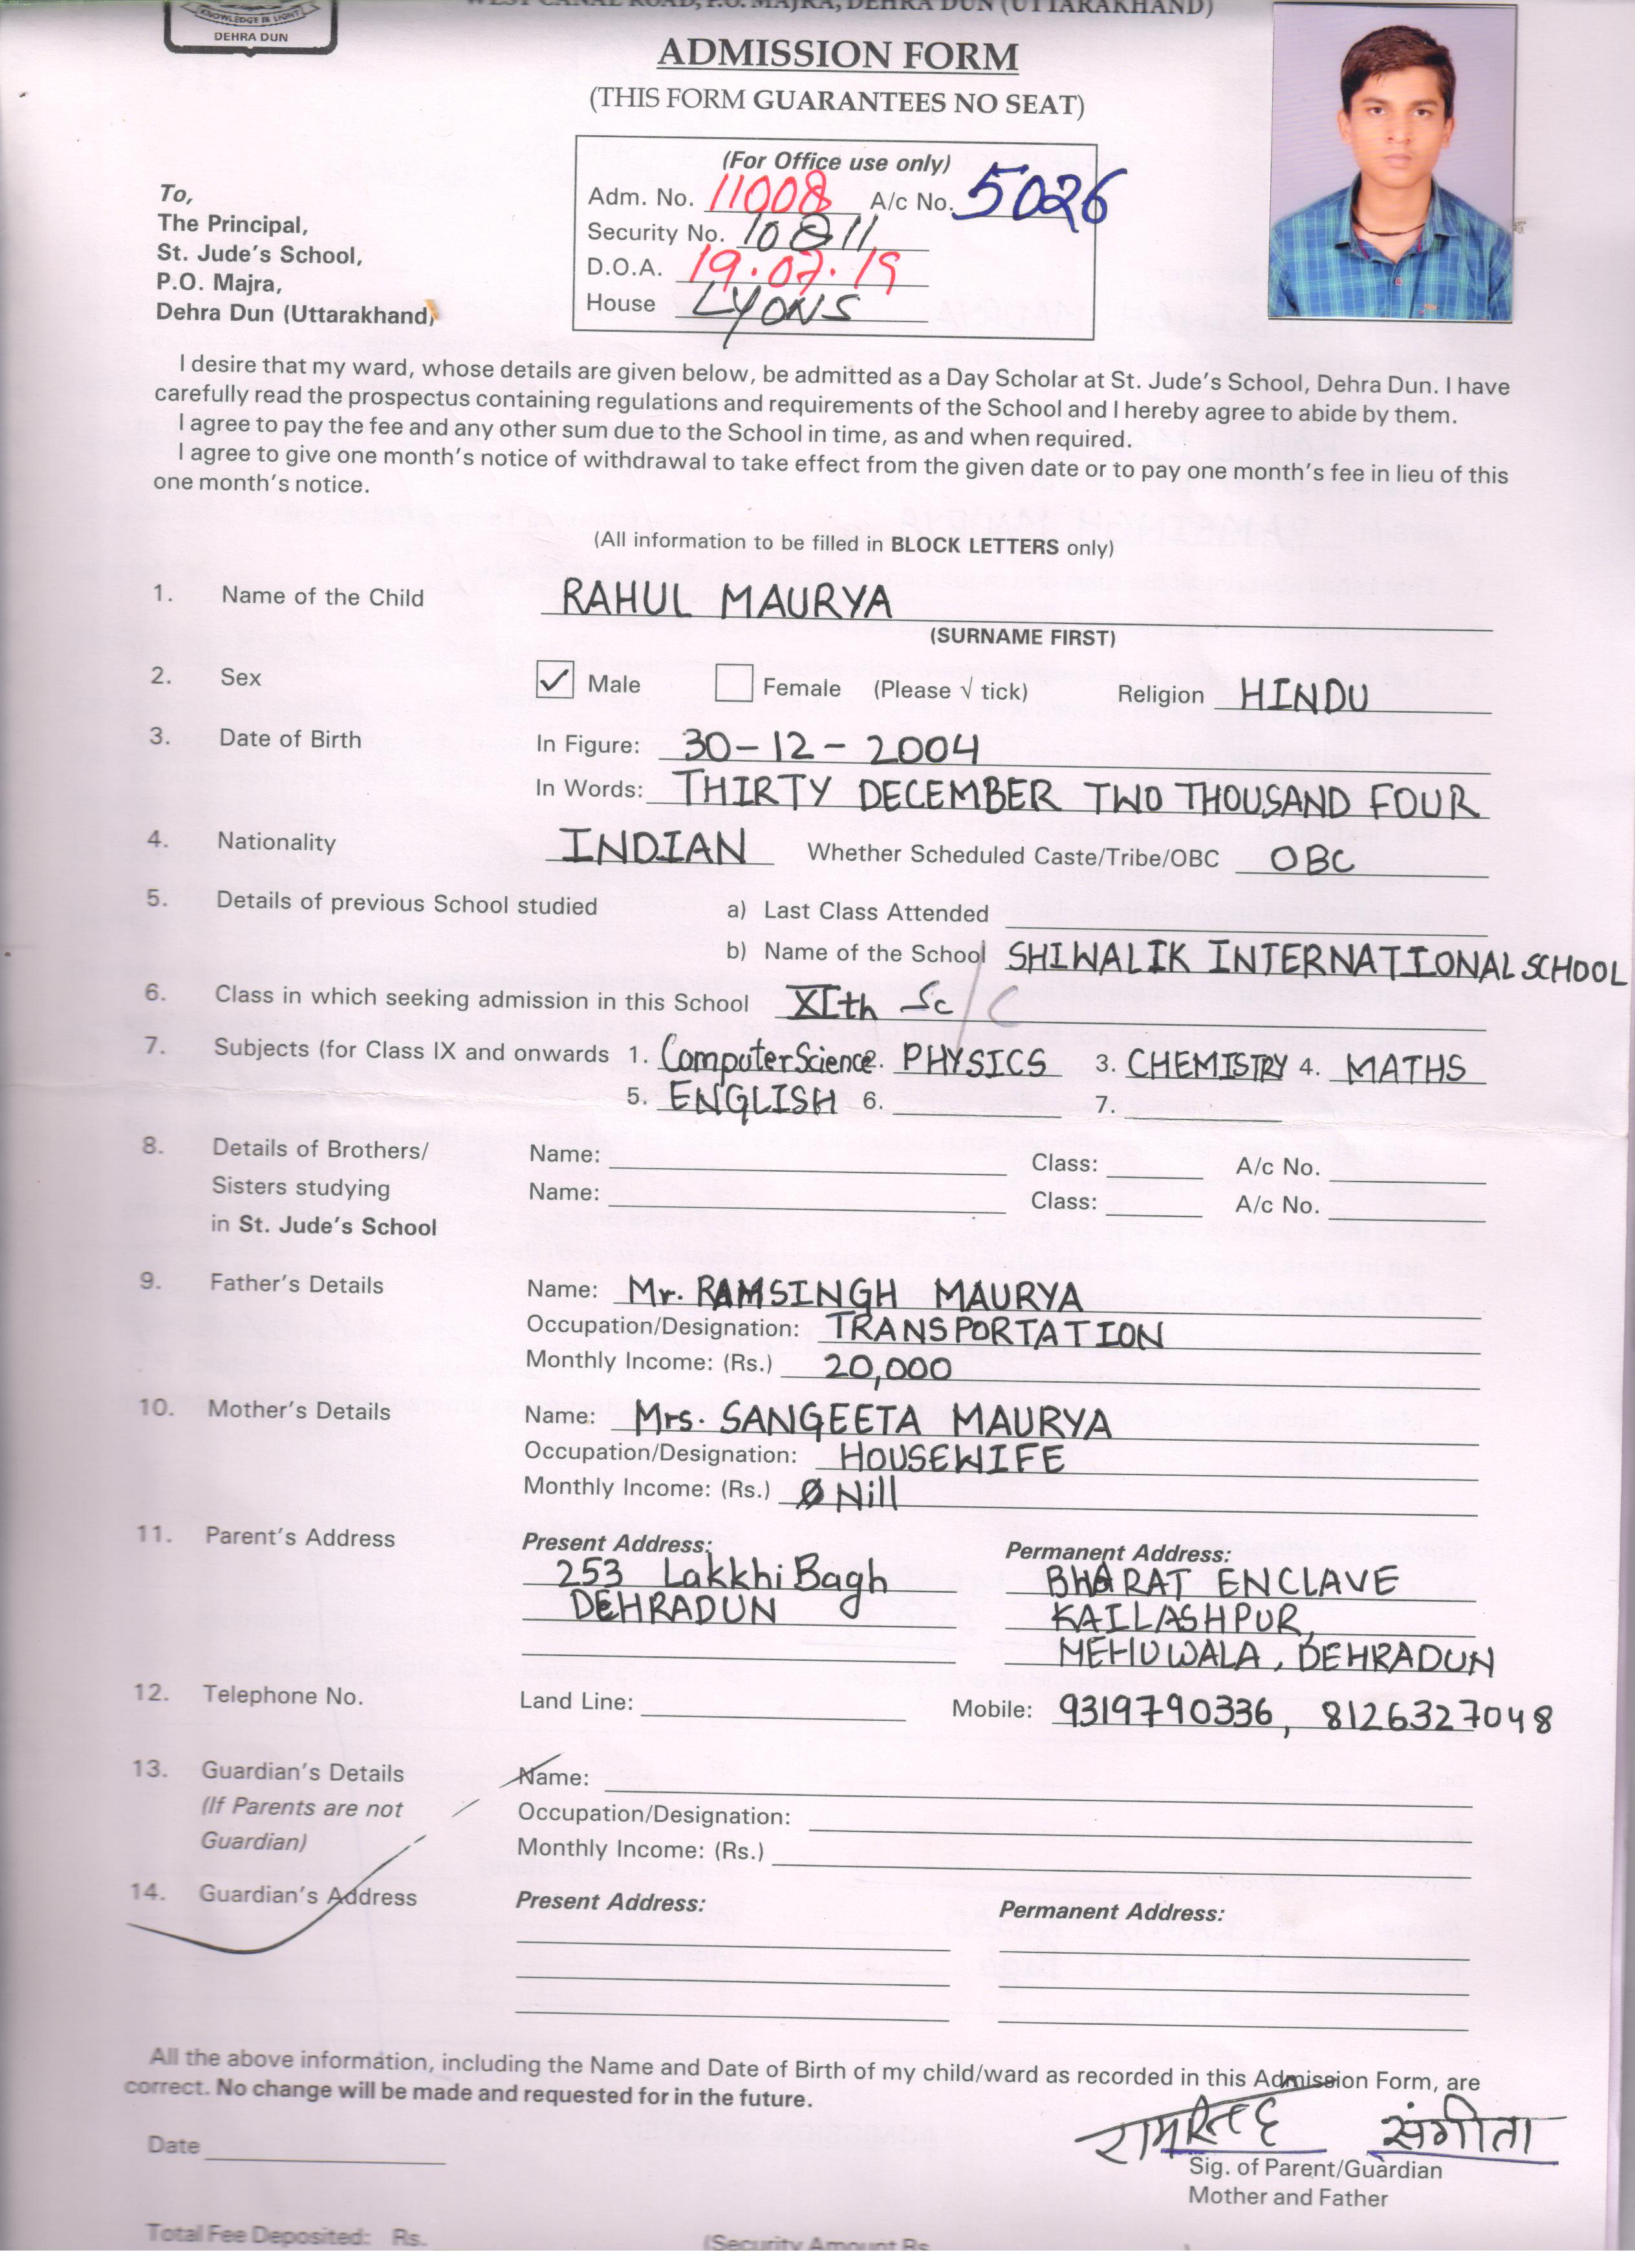 KNOWLEDGE IS LIGHT
DEHRA DUN
WEST CANAL ROAD, P.O. MAJRA, DEHRA DUN (UTTARAKHAND)
ADMISSION FORM
(THIS FORM GUARANTEES NO SEAT)
(For Office use only)
Adm. No. 11008 A/c No. 5026
Security No. 10811
D.O.A. 19.07.19
House LYONS
To,
The Principal,
St. Jude's School,
P.O. Majra,
Dehra Dun (Uttarakhand)
I desire that my ward, whose details are given below, be admitted as a Day Scholar at St. Jude's School, Dehra Dun. I have
carefully read the prospectus containing regulations and requirements of the School and I hereby agree to abide by them.
I agree to pay the fee and any other sum due to the School in time, as and when required.
I agree to give one month's notice of withdrawal to take effect from the given date or to pay one month's fee in lieu of this
one month's notice.
(All information to be filled in BLOCK LETTERS only)
1. Name of the Child RAHUL MAURYA
(SURNAME FIRST)
2. Sex ✓ Male Female (Please √ tick) Religion HINDU
3. Date of Birth In Figure: 30-12-2004
In Words: THIRTY DECEMBER TWO THOUSAND FOUR
4. Nationality INDIAN Whether Scheduled Caste/Tribe/OBC OBC
5. Details of previous School studied a) Last Class Attended
b) Name of the School SHIWALIK INTERNATIONAL SCHOOL
6. Class in which seeking admission in this School XIth Sc/C
7. Subjects (for Class IX and onwards 1. Computer Science. PHYSICS 3. CHEMISTRY 4. MATHS
5. ENGLISH 6. 7.
8. Details of Brothers/ Name: Class: A/c No.
Sisters studying Name: Class: A/c No.
in St. Jude's School
9. Father's Details Name: Mr. RAMSINGH MAURYA
Occupation/Designation: TRANSPORTATION
Monthly Income: (Rs.) 20,000
10. Mother's Details Name: Mrs. SANGEETA MAURYA
Occupation/Designation: HOUSEWIFE
Monthly Income: (Rs.) Nill
11. Parent's Address Present Address: Permanent Address:
253 Lakkhi Bagh BHARAT ENCLAVE
DEHRADUN KAILASHPUR,
MEHUWALA, DEHRADUN
12. Telephone No. Land Line: Mobile: 9319790336, 8126327048
13. Guardian's Details Name:
(If Parents are not Occupation/Designation:
Guardian) Monthly Income: (Rs.)
14. Guardian's Address Present Address: Permanent Address:
All the above information, including the Name and Date of Birth of my child/ward as recorded in this Admission Form, are
correct. No change will be made and requested for in the future.
रामसिंह संगीता
Date
Sig. of Parent/Guardian
Mother and Father
Total Fee Deposited: Rs. (Security Amount Rs.